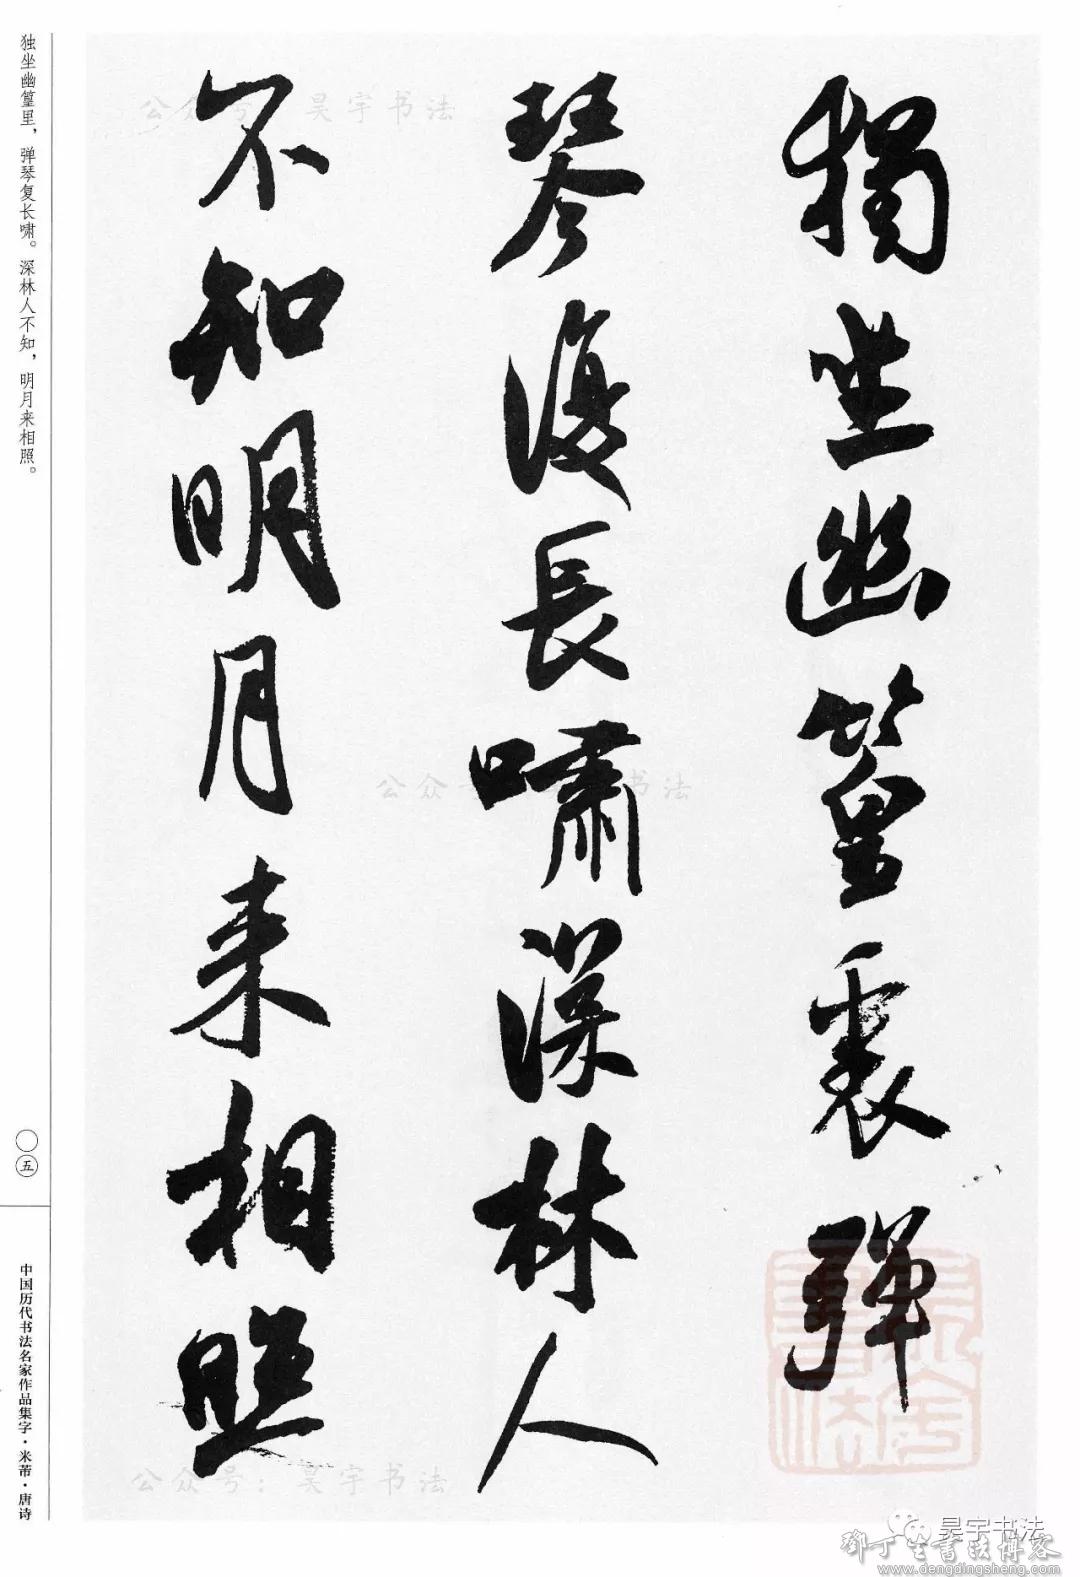 獨坐幽篁裏彈
琴復長嘯深林人
不知明月来相照
独坐幽篁里，弹琴复长啸。深林人不知，明月来相照。
〇五
中国历代书法名家作品集字·米芾·唐诗
公众号：昊宇书法
公众号 书法
公众号：昊宇书法
昊宇书法
鄧丁生書法博客
www.dengdingsheng.com